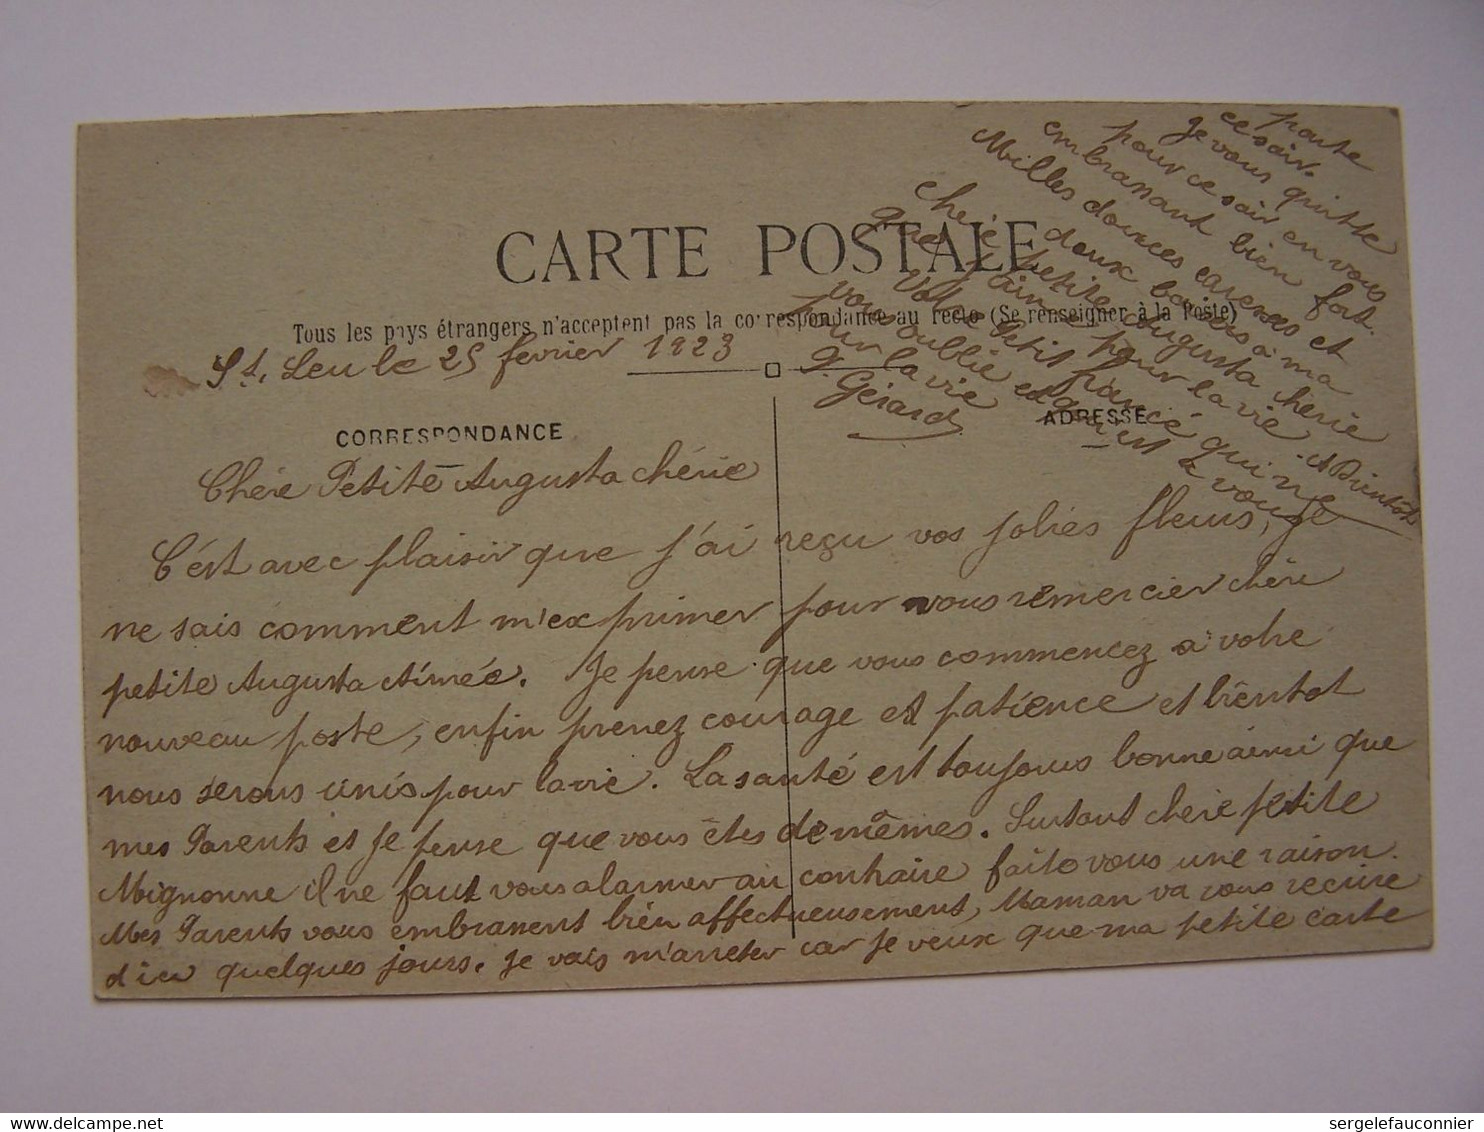 CARTE POSTALE
Tous les pays étrangers n'acceptent pas la correspondance au recto (Se renseigner à la Poste)
St. Leu le 25 fevrier 1923
CORRESPONDANCE
ADRESSE
Chére Petite Augusta chérie
C'est avec plaisir que j'ai reçu vos jolies fleurs, je
ne sais comment m'exprimer pour vous remercier chére
petite Augusta Aimée. Je pense que vous commencez a votre
nouveau poste, enfin prenez courage et patience et bientot
nous serons unis pour la vie. La santé est toujours bonne ainsi que
mes Parents et je pense que vous êtes de mêmes. Surtout chére petite
Mignonne il ne faut vous alarmer au contraire faite vous une raison.
Mes Parents vous embrassent bien affectueusement, Maman va vous recrire
d'ici quelques jours. Je vais m'arreter car je veux que ma petite carte
parte
ce soir.
Je vous quitte
pour ce soir en vous
embrassant bien fort.
Milles douces caresses et
doux baisers à ma
chere petite Augusta cherie
que j'aime pour la vie
Votre Petit fiancé qui ne
vous oublie et qui est a vous
pour la vie
A Bientôt
G. Gérard
sergelefauconnier